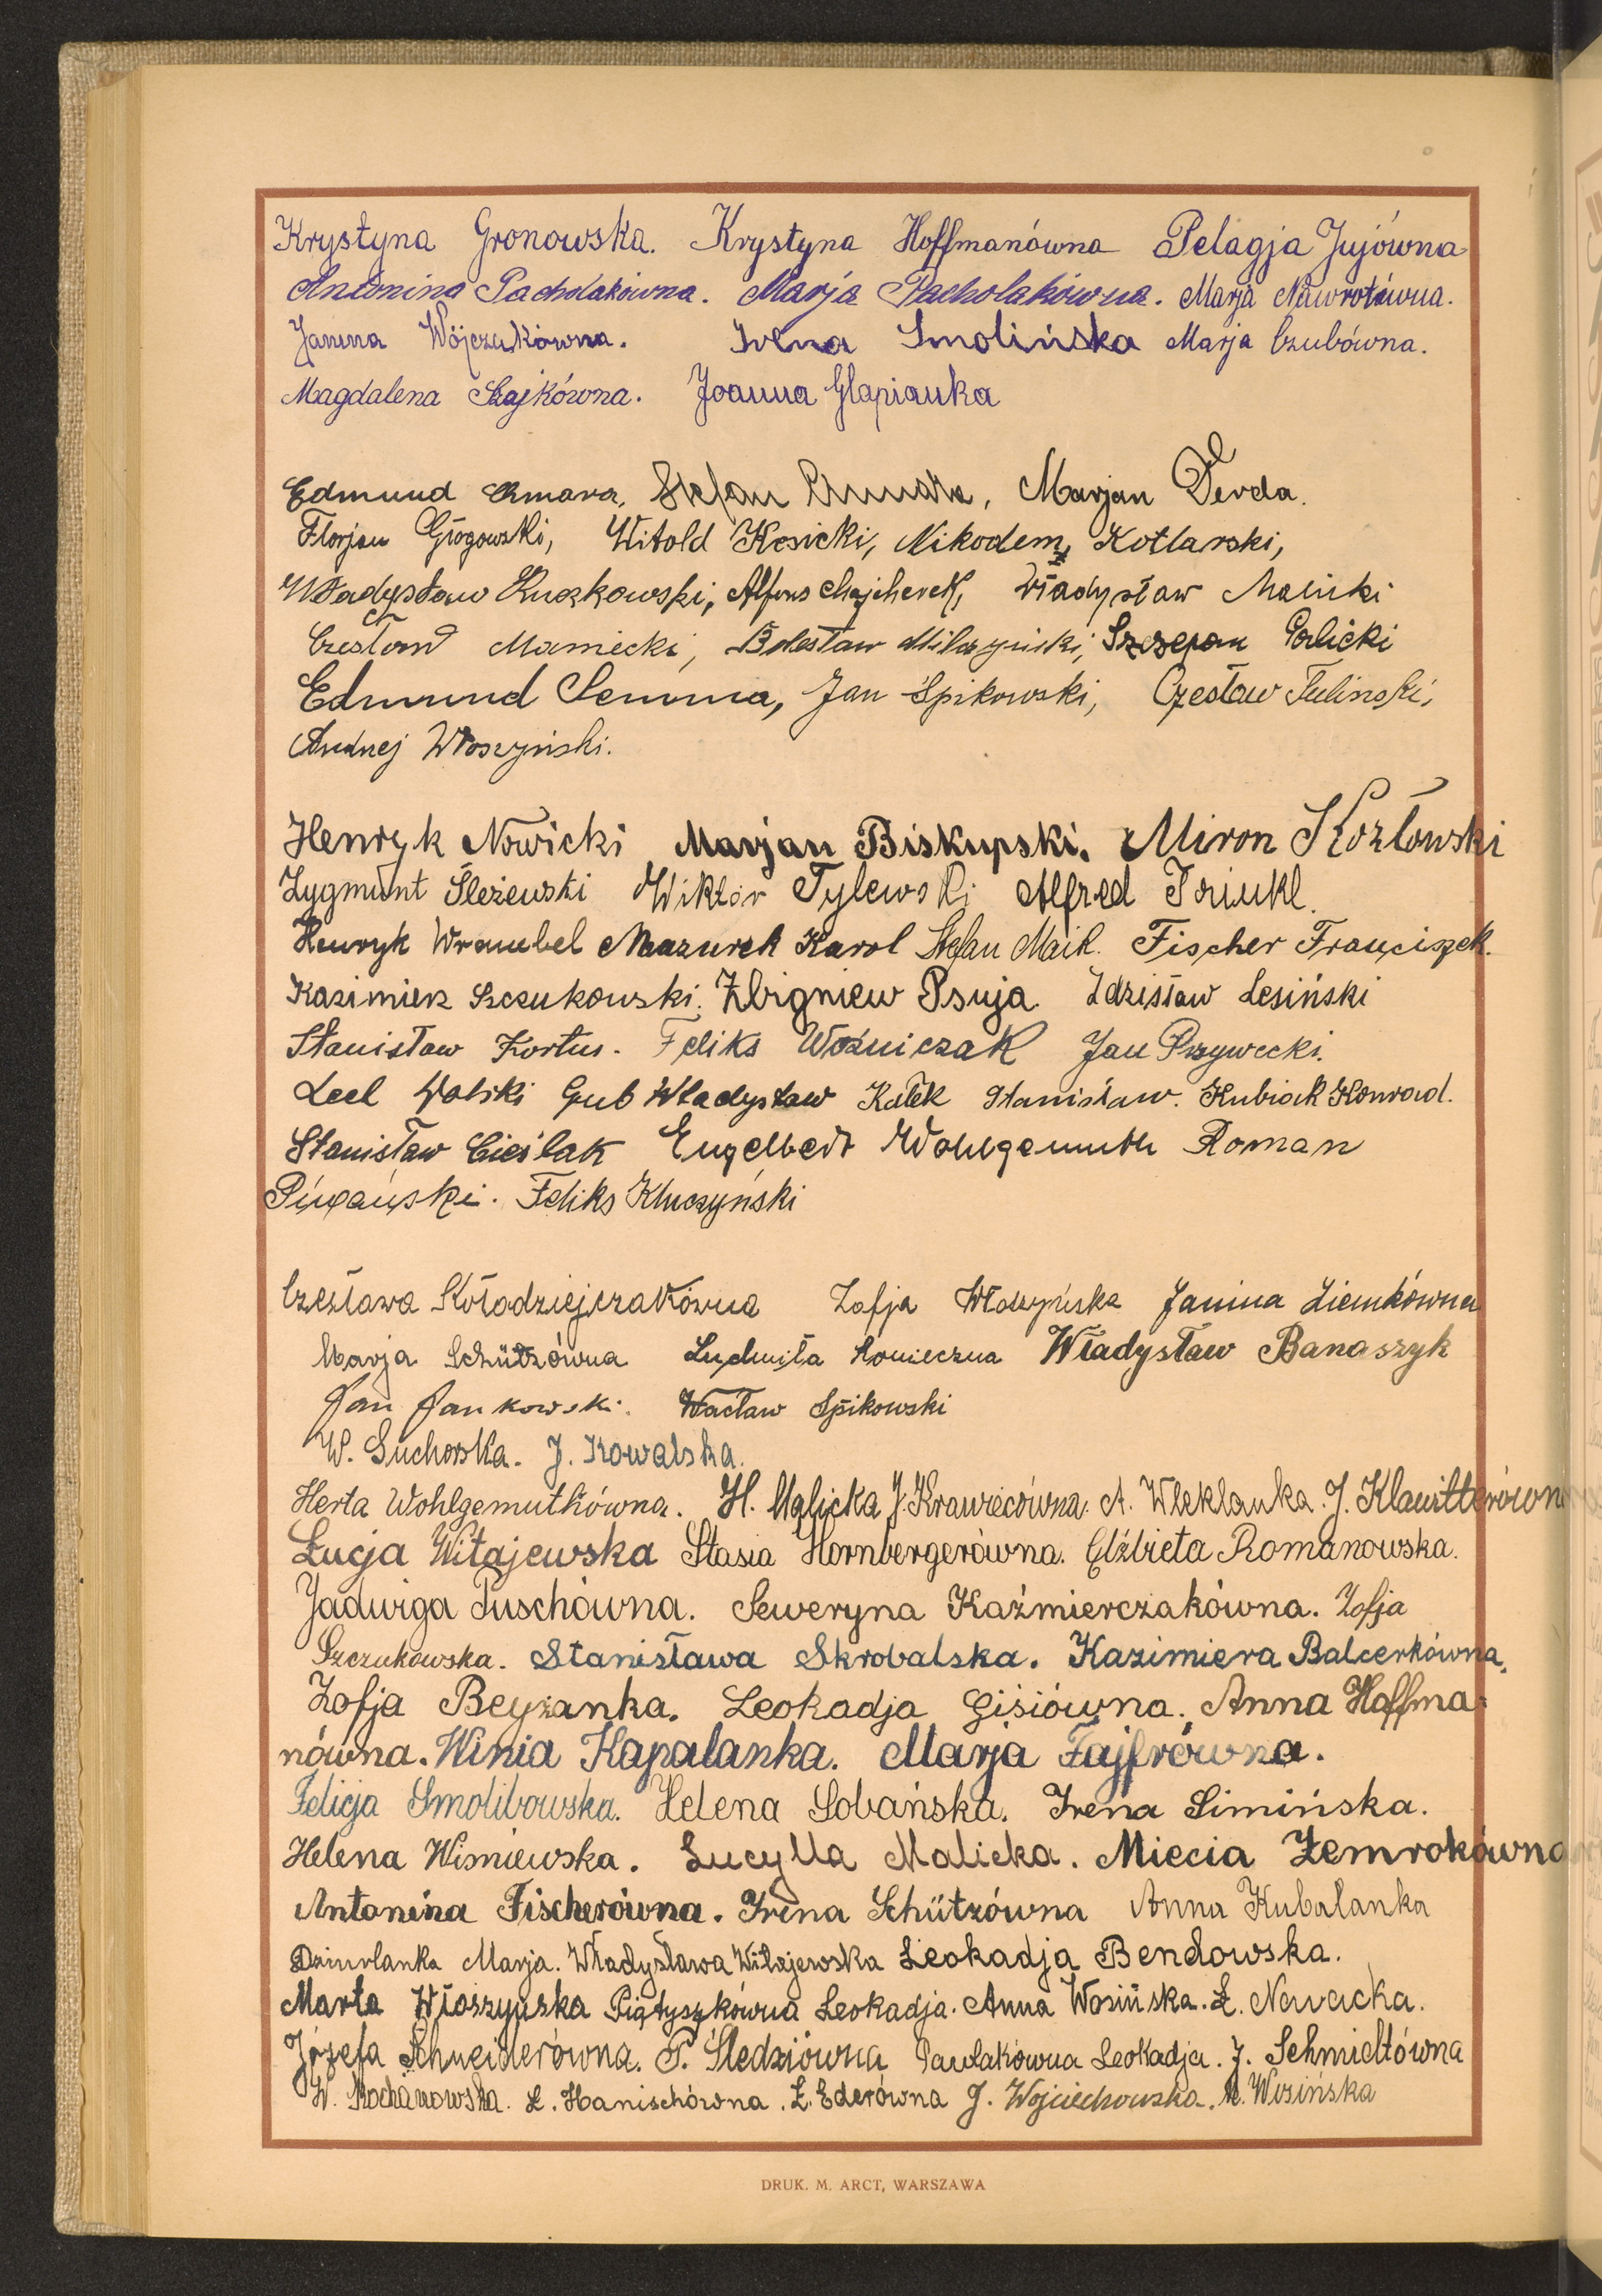 Krystyna Gronowska. Krystyna Hoffmanówna Pelagja Jujówna
Antonina Pacholakówna. Marja Pacholakówna. Marja Nawrotówna.
Janina Wójczukówna. Irena Smolińska Marja Czubówna.
Magdalena Szajkówna. Joanna Glapianka
Edmund Chmara, Stefan Marjan Derda.
Florjan Głogowski, Witold Kesicki, Nikodem Kotlarski,
Władysław Kuczkowski, Alfons Majcherek, Władysław Malicki
Czesław Marniecki, Bolesław Szczepan Policki
Edmund Semma, Jan Spikowski, Czesław Tuliński,
Andrzej Włoszyński.
Henryk Nowicki Marjan Biskupski. Miron Kozłowski
Zygmunt Śleżewski Wiktor Tylewski Alfred
Henryk Wrambel Mazurek Karol Stefan Maik. Fischer Franciszek.
Kazimierz Szczukowski. Zbigniew Psuja Zdzisław Lesiński
Stanisław Kortus. Feliks Woźniczak Jan Przywecki.
Leel Wolski Gub Władysław Kałek Stanisław. Kubiak Konrad.
Stanisław Cieślak Engelbert Wohlgemuth Roman
Piwański. Feliks Kluczyński
Czesława Kołodziejczakówna Zofja Włoszyńska Janina Ziemkówna
Marja Schützówna Ludmiła Konieczna Władysław Banaszyk
Jan Jankowski. Wacław Spikowski
W. Suchorska. J. Kowalska.
Herta Wohlgemuthówna. H. Malicka J. Krawiecówna. A. Wleklanka. J. Klawitterówna
Łucja Witajewska Stasia Hornbergerówna. Elżbieta Romanowska.
Jadwiga Tuschówna. Seweryna Kaźmierczakówna. Zofja
Szczukowska. Stanisława Skrobalska. Kazimiera Balcerkówna.
Zofja Beyzanka. Leokadja Gisiówna. Anna Hoffma-
nówna. Winia Kapalanka. Marja Fajfrówna.
Felicja Smolibowska. Helena Sobańska. Irena Simińska.
Helena Wiśniewska. Lucylla Malicka. Miecia Zemrokówna
Antonina Fischerówna. Irena Schützówna Anna Kubalanka
Dziurlanka Marja. Władysława Witajewska Leokadja Bendowska.
Marta Włoszyńska Piątyszkówna Leokadja. Anna Wosińska. Ł. Nawacka.
Józefa Schneiderówna. P. Śledziówna Pawlakówna Leokadja. J. Schmidtówna
W. Kochanowska. L. Hanischówna. Ł. Ederówna J. Wojciechowska. M. Wosińska
DRUK. M. ARCT, WARSZAWA